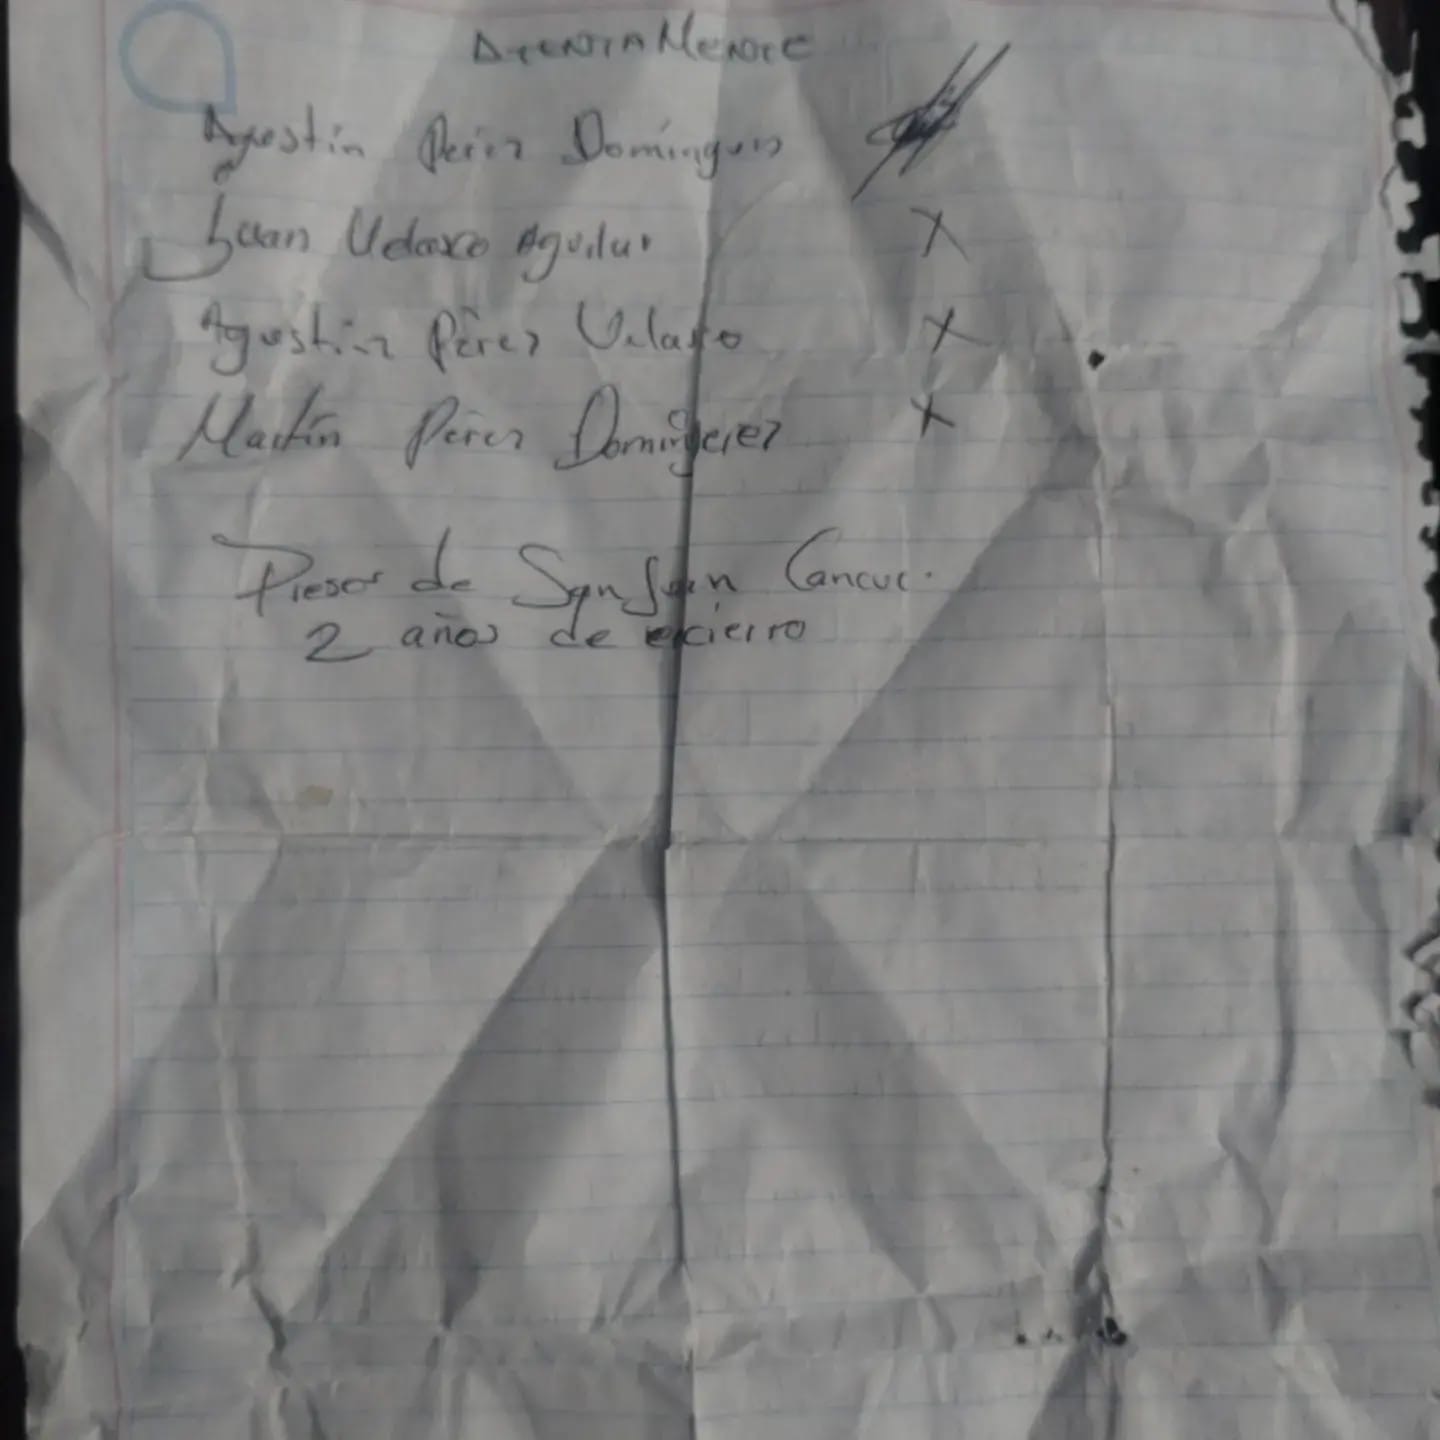 ATENTAMENTE
Agustín Pérez Domínguez
Juan Velasco Aguilar X
Agustín Pérez Velasco X
Martín Pérez Domínguez X
Presos de San Juan Cancuc.
2 años de encierro